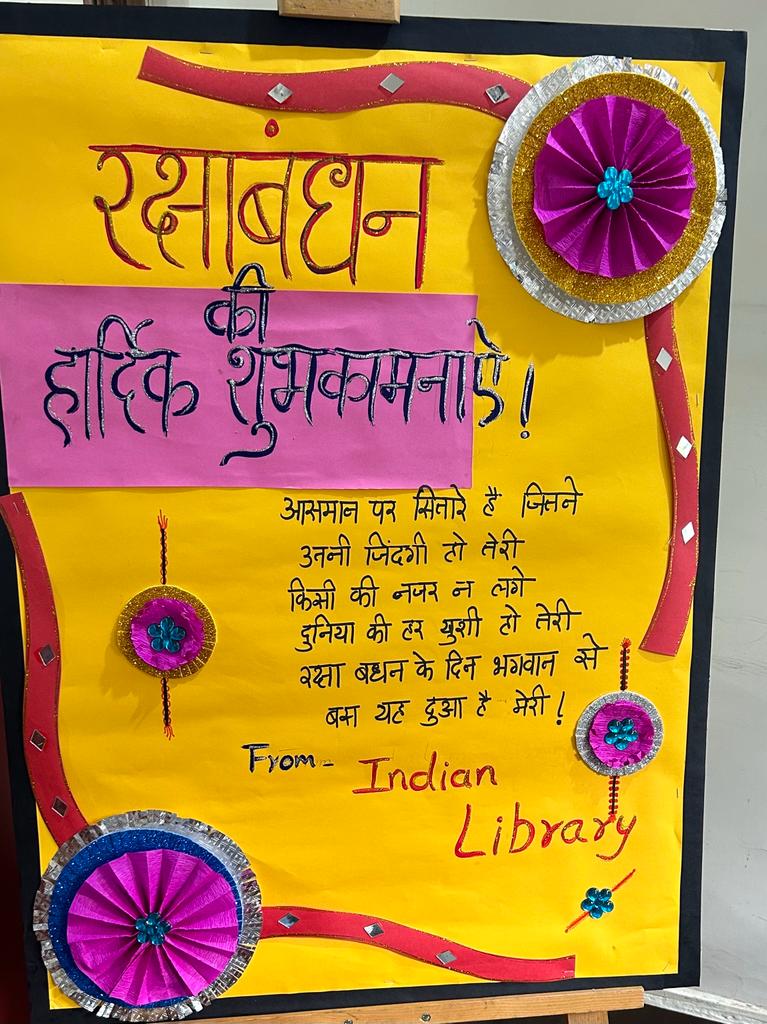 रक्षाबंधन
की
हार्दिक शुभकामनाऐ!
आसमान पर सितारे है जितने
उतनी जिंदगी हो तेरी
किसी की नजर न लगे
दुनिया की हर खुशी हो तेरी
रक्षा बधन के दिन भगवान से
बस यह दुआ है मेरी!
From- Indian
Library